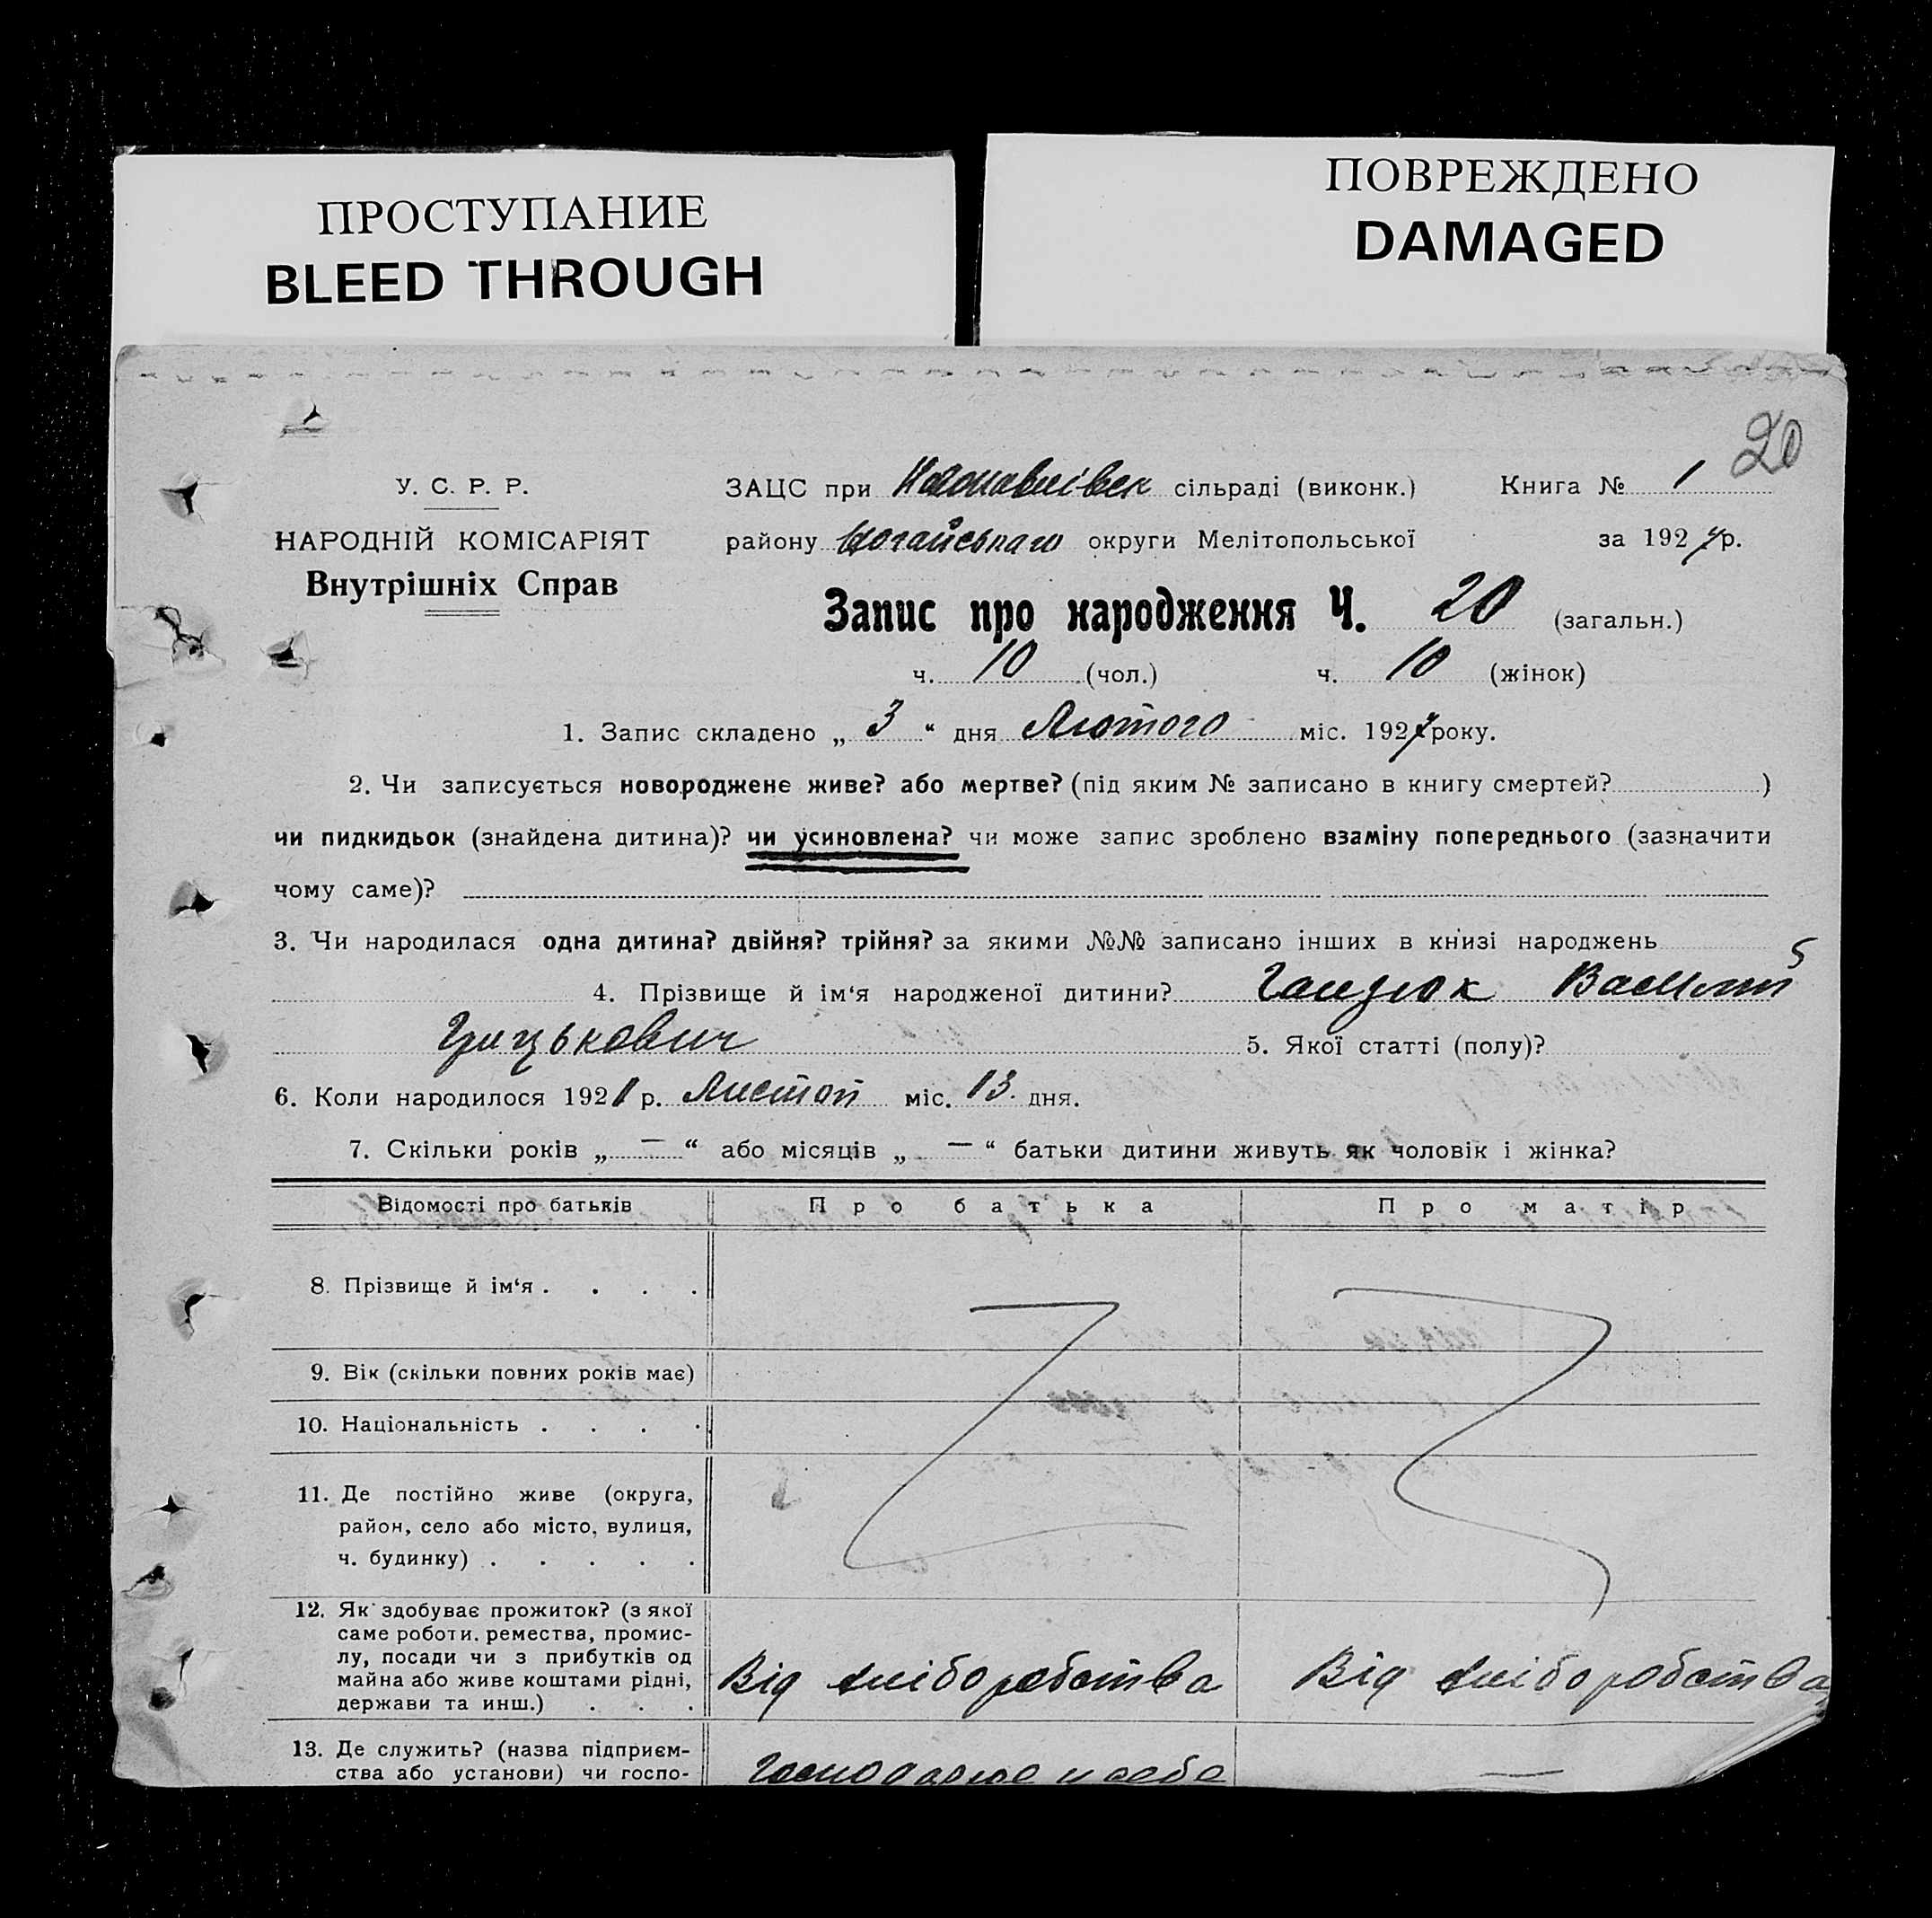 ПРОСТУПАНИЕ
BLEED THROUGH
ПОВРЕЖДЕНО
DAMAGED
20
У. С. Р. Р.
НАРОДНІЙ КОМІСАРІЯТ
Внутрішніх Справ
ЗАЦС при Новопавлівск сільраді (виконк.) Книга № 1
району Ногайського округи Мелітопольської за 1927 р.
Запис про народження Ч. 20 (загальн.)
ч. 10 (чол.) ч. 10 (жінок)
1. Запис складено „ 3 “ дня Лютого міс. 1927 року.
2. Чи записується новороджене живе? або мертве? (під яким № записано в книгу смертей? )
чи пидкидьок (знайдена дитина)? чи усиновлена? чи може запис зроблено взаміну попереднього (зазначити
чому саме)?
3. Чи народилася одна дитина? двійня? трійня? за якими №№ записано інших в книзі народжень
4. Прізвище й ім‘я народженої дитини? Гандюк Василий
Грицькович 5. Якої статті (полу)?
6. Коли народилося 1921 р. Листоп міс. 13 дня.
7. Скільки років „ — “ або місяців „ — “ батьки дитини живуть як чоловік і жінка?
Відомості про батьків Про батька Про матір
8. Прізвище й ім‘я . . . .
9. Вік (скільки повних років має)
10. Національність . . . .
11. Де постійно живе (округа,
район, село або місто, вулиця,
ч. будинку) . . . . .
12. Як здобуває прожиток? (з якої
саме роботи, ремества, промис-
лу, посади чи з прибутків од
майна або живе коштами рідні,
держави та инш.) . . .
Від хліборобства Від хліборобства
13. Де служить? (назва підприєм-
ства або установи) чи госпо-
Господарює у себе —